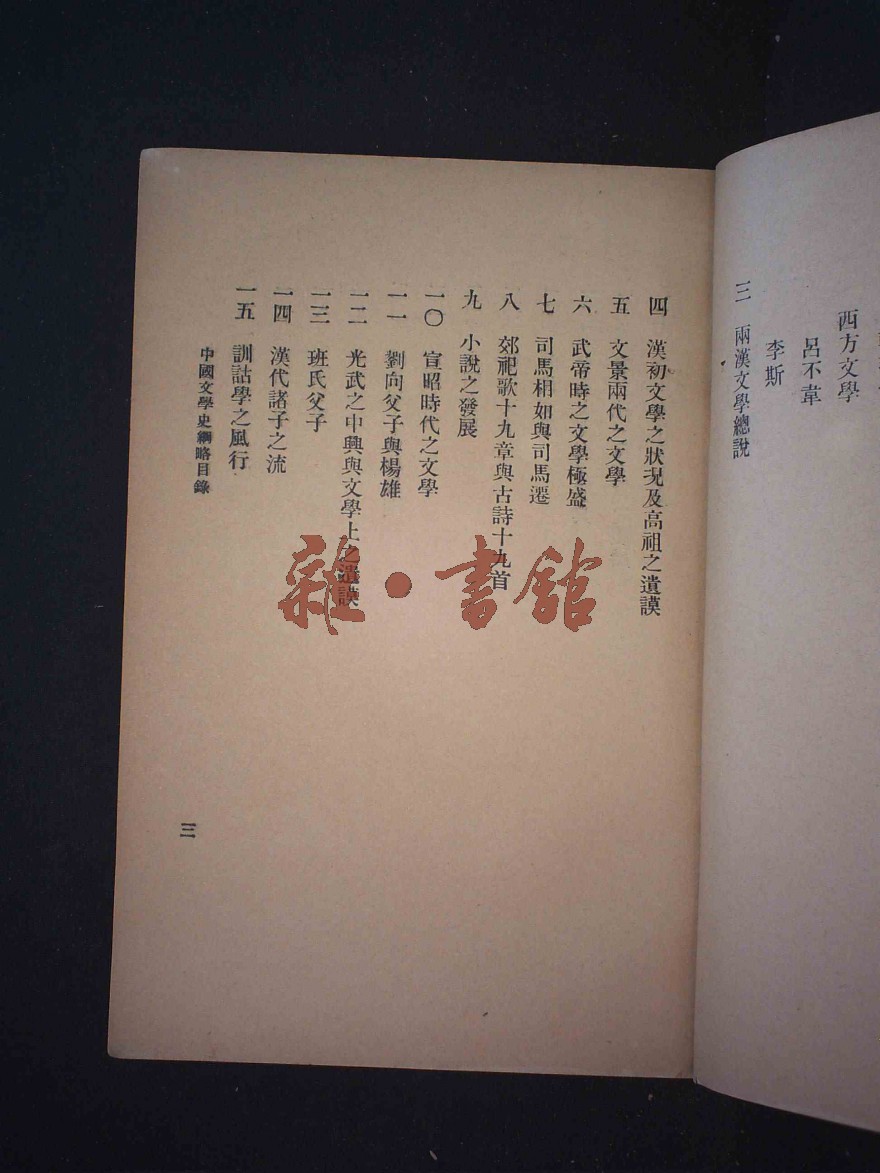 西方文學
呂不韋
李斯
三 兩漢文學總說
四 漢初文學之狀況及高祖之遺謨
五 文景兩代之文學
六 武帝時之文學極盛
七 司馬相如與司馬遷
八 郊祀歌十九章與古詩十九首
九 小說之發展
一〇 宣昭時代之文學
一一 劉向父子與楊雄
一二 光武之中興與文學上之遺謨
一三 班氏父子
一四 漢代諸子之流
一五 訓詁學之風行
中國文學史綱略目錄
三
雜·書館